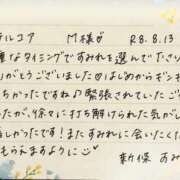 デルコア M様♂ R8.8.13
なタイミングですみれを選んで下さり
がとうございました♡はじめからギンギン
ちかったですね♪緊張されていた
たが、徐々に打ち解けられた気がし
しかったです！またすみれに会いたく
もらえますように♡
新保 すみ